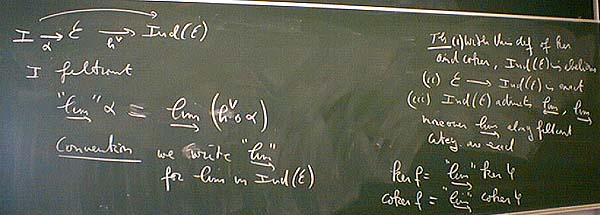 I →α 𝓔 →h^∨ Ind(𝓔)
I filtrant
"lim→" α = lim→ (h^∨ ∘ α)
Convention we write "lim→"
for lim in Ind(𝓔)
Th (i) With this def of ker
and coker, Ind(𝓔) is abelian
(ii) 𝓔 → Ind(𝓔) is exact
(iii) Ind(𝓔) admits lim→, lim←
moreover lim→ along filtrant
categ. are exact
ker f = "lim→" ker φ
coker f = "lim→" coker φ